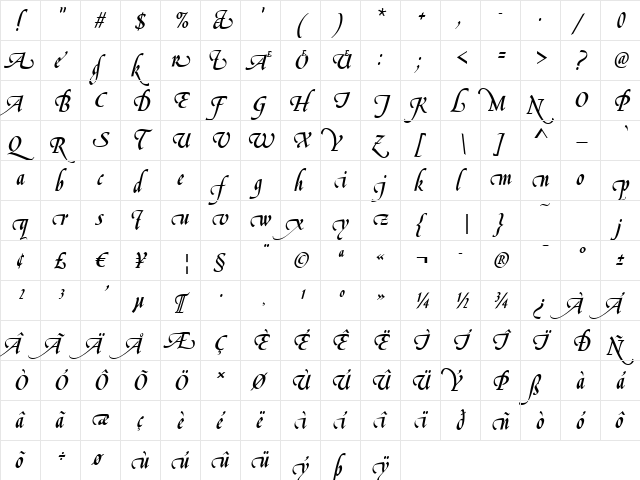 ! " # $ % & ' ( ) * + , - . / 0
A e g k r t Æ Ö Ü : ; < = > ? @
A B C D E F G H I J K L M N O P
Q R S T U V W X Y Z [ \ ] ^ _ `
a b c d e f g h i j k l m n o p
q r s t u v w x y z { | } ~ j
¢ £ € ¥ ¦ § ¨ © ª « ¬ - ® ¯ ° ±
² ³ ´ µ ¶ · ¸ ¹ º » ¼ ½ ¾ ¿ À Á
Â Ã Ä Å Æ Ç È É Ê Ë Ì Í Î Ï Ð Ñ
Ò Ó Ô Õ Ö × Ø Ù Ú Û Ü Ý Þ ß à á
â ã ä å æ ç è é ê ë ì í î ï ð ñ ò ó ô
õ ÷ ø ù ú û ü ý þ ÿ